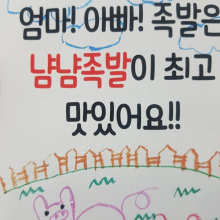 엄마! 아빠! 족발은
냠냠족발이 최고
맛있어요!!